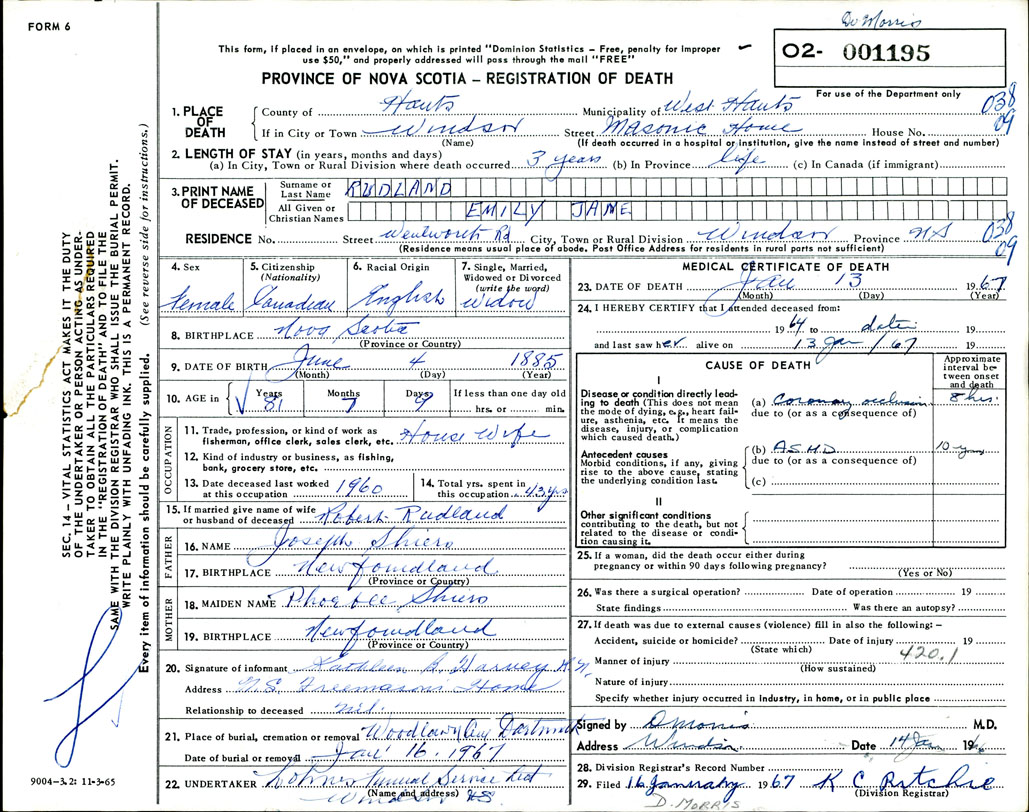 FORM 6
Dr Morris
This form, if placed in an envelope, on which is printed "Dominion Statistics – Free, penalty for improper
use $50," and properly addressed will pass through the mail "FREE"
02- 001195
For use of the Department only
PROVINCE OF NOVA SCOTIA – REGISTRATION OF DEATH
SEC. 14 – VITAL STATISTICS ACT MAKES IT THE DUTY
OF THE UNDERTAKER OR PERSON ACTING AS UNDER-
TAKER TO OBTAIN ALL THE PARTICULARS REQUIRED
IN THE "REGISTRATION OF DEATH" AND TO FILE THE
SAME WITH THE DIVISION REGISTRAR WHO SHALL ISSUE THE BURIAL PERMIT.
WRITE PLAINLY WITH UNFADING INK. THIS IS A PERMANENT RECORD.
Every item of information should be carefully supplied. (See reverse side for instructions.)
1. PLACE OF DEATH
County of Hants Municipality of West Hants 038
If in City or Town Windsor Street Masonic Home House No. 09
(Name) (If death occurred in a hospital or institution, give the name instead of street and number)
2. LENGTH OF STAY (in years, months and days)
(a) In City, Town or Rural Division where death occurred 3 years (b) In Province life (c) In Canada (if immigrant)
3. PRINT NAME OF DECEASED
Surname or Last Name RUDLAND
All Given or Christian Names EMILY JANE
RESIDENCE No. Street Wentworth Rd City, Town or Rural Division Windsor Province NS 038
(Residence means usual place of abode. Post Office Address for residents in rural parts not sufficient) 09
4. Sex Female
5. Citizenship (Nationality) Canadian
6. Racial Origin English
7. Single, Married, Widowed or Divorced (write the word) Widow
8. BIRTHPLACE Nova Scotia
(Province or Country)
9. DATE OF BIRTH June 4 1885
(Month) (Day) (Year)
10. AGE in Years 81 Months 7 Days 9 If less than one day old
hrs. or min.
OCCUPATION
11. Trade, profession, or kind of work as House Wife
fisherman, office clerk, sales clerk, etc.
12. Kind of industry or business, as fishing,
bank, grocery store, etc.
13. Date deceased last worked at this occupation 1960
14. Total yrs. spent in this occupation 43 yrs
15. If married give name of wife or husband of deceased Robert Rudland
FATHER
16. NAME Joseph Shiers
17. BIRTHPLACE Newfoundland
(Province or Country)
MOTHER
18. MAIDEN NAME Phoebee Shiers
19. BIRTHPLACE Newfoundland
(Province or Country)
20. Signature of informant Kathleen G. Harvey R.N.
Address N.S. Freemasons Home
Relationship to deceased nil.
21. Place of burial, cremation or removal Woodlawn Dartmouth
Date of burial or removal Jan 16, 1967
22. UNDERTAKER Funeral Service Ltd
(Name and address) Windsor NS
9004–3.2: 11-3-65
MEDICAL CERTIFICATE OF DEATH
23. DATE OF DEATH Jan 13 1967
(Month) (Day) (Year)
24. I HEREBY CERTIFY that I attended deceased from:
1964 to date 19
and last saw her alive on 13 Jan /67 19
CAUSE OF DEATH
Approximate interval between onset and death
I
Disease or condition directly leading to death (This does not mean the mode of dying, e.g., heart failure, asthenia, etc. It means the disease, injury, or complication which caused death.)
(a) Coronary occlusion 8 hrs.
due to (or as a consequence of)
Antecedent causes
Morbid conditions, if any, giving rise to the above cause, stating the underlying condition last.
(b) ASHD 10 yrs
due to (or as a consequence of)
(c)
II
Other significant conditions
contributing to the death, but not related to the disease or condition causing it.
25. If a woman, did the death occur either during
pregnancy or within 90 days following pregnancy?
(Yes or No)
26. Was there a surgical operation? Date of operation 19
State findings Was there an autopsy?
27. If death was due to external causes (violence) fill in also the following: –
Accident, suicide or homicide? Date of injury 19
(State which) 420.1
Manner of injury
(How sustained)
Nature of injury
Specify whether injury occurred in industry, in home, or in public place
Signed by D Morris M.D.
Address Windsor Date 14 Jan 19
28. Division Registrar's Record Number
29. Filed 16 January 1967 K C Ritchie
(Division Registrar)
D. MORRIS